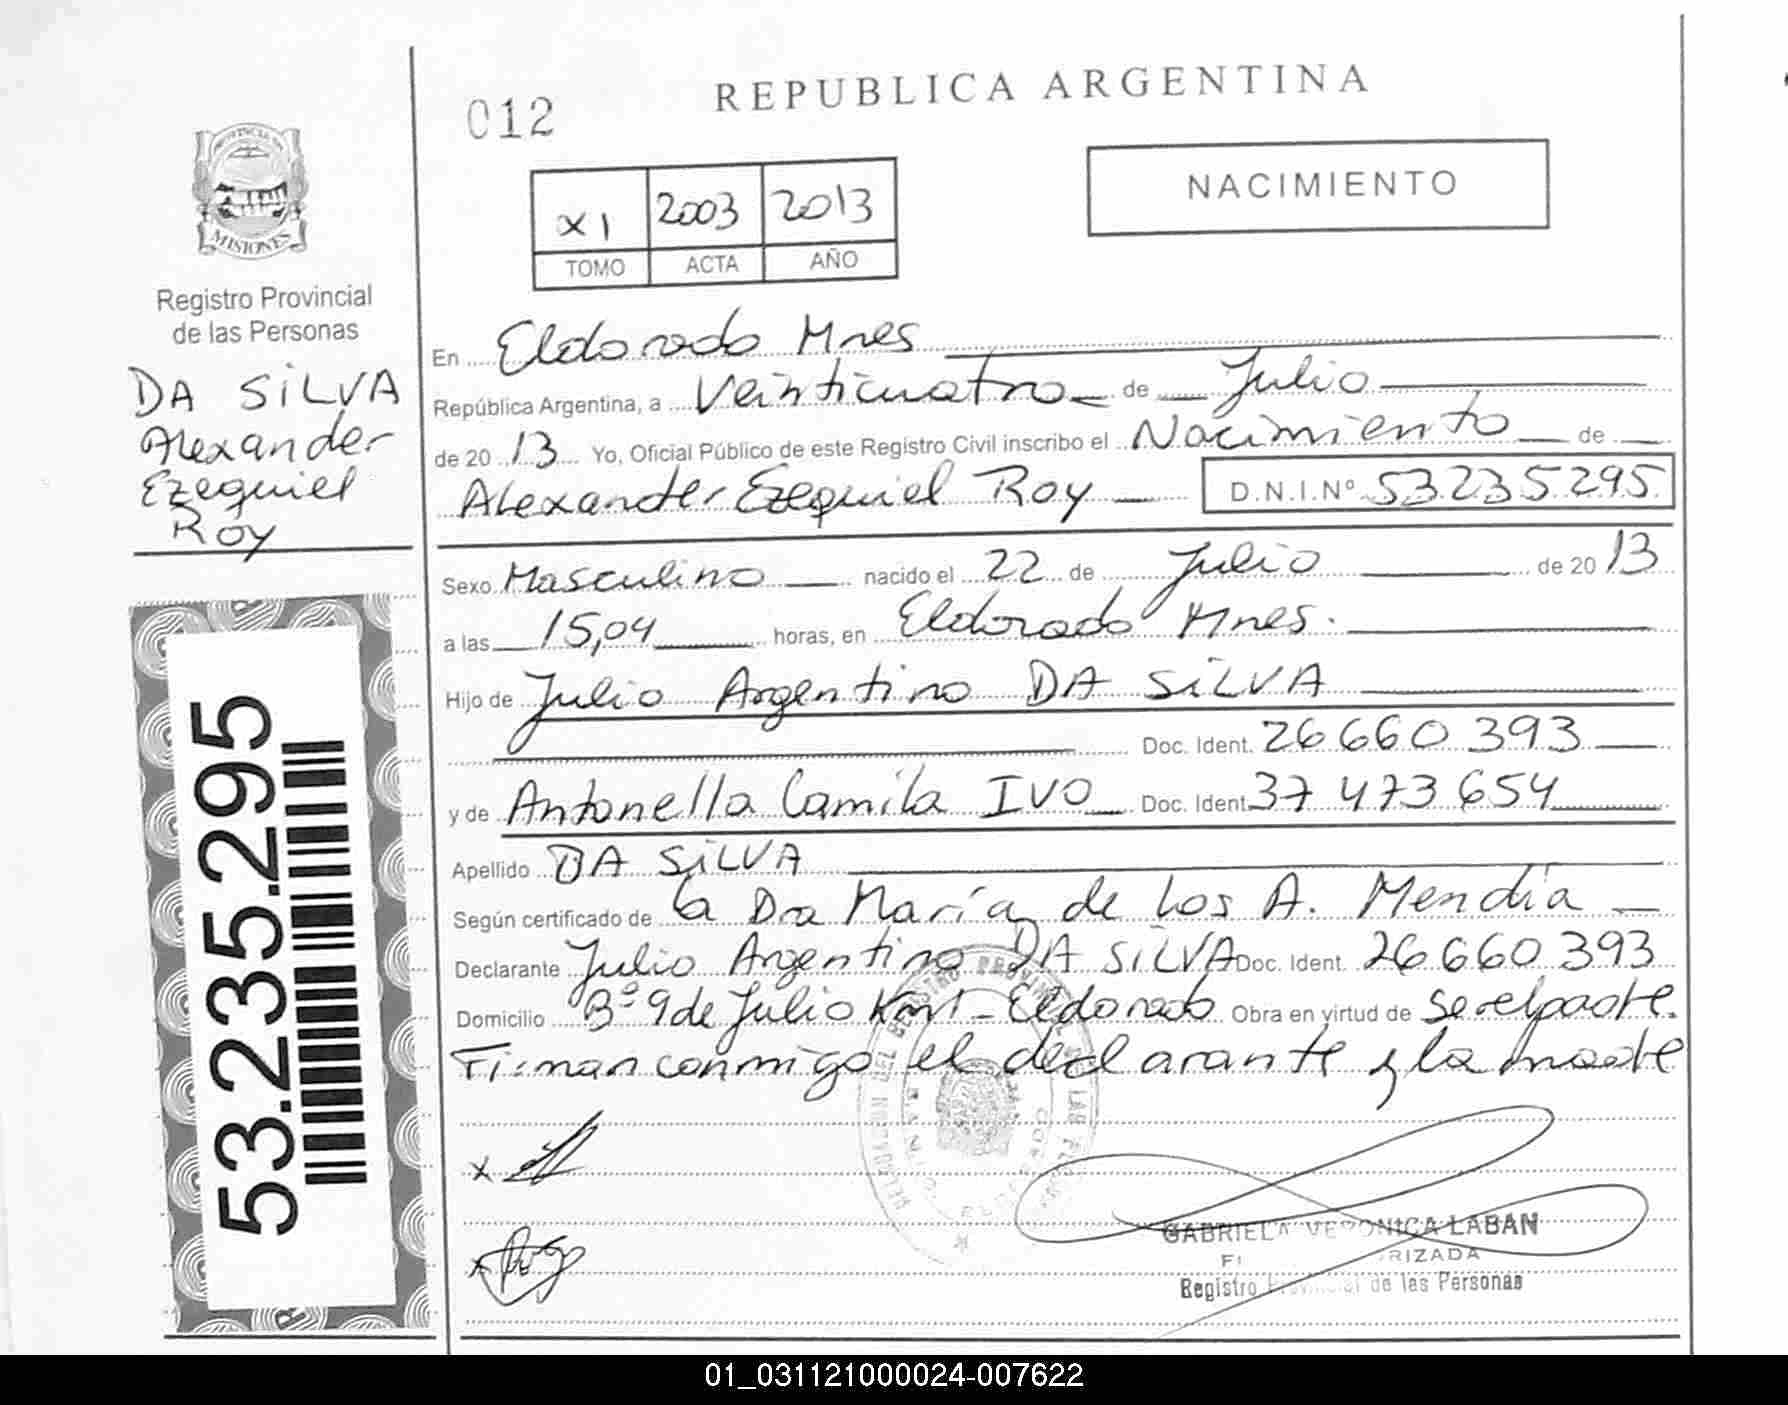 012
REPUBLICA ARGENTINA
PROVINCIA DE
MISIONES
Registro Provincial
de las Personas
XI 2003 2013
TOMO ACTA AÑO
NACIMIENTO
DA SILVA
Alexander
Ezequiel
Roy
53.235.295
En Eldorado Mnes
República Argentina, a Veinticuatro de Julio
de 20 13 Yo, Oficial Público de este Registro Civil inscribo el Nacimiento de
Alexander Ezequiel Roy D.N.I.Nº 53235295
Sexo Masculino nacido el 22 de Julio de 20 13
a las 15,04 horas, en Eldorado Mnes.
Hijo de Julio Argentino DA SILVA
Doc. Ident. 26 660 393
y de Antonella Camila IVO Doc. Ident. 37 473 654
Apellido DA SILVA
Según certificado de la Dra María de los A. Mendia
Declarante Julio Argentino DA SILVA Doc. Ident. 26 660 393
Domicilio Bº 9 de Julio Km 1 - Eldorado Obra en virtud de ser el padre.
Firman conmigo el declarante y la madre
x
x
GABRIELA VERONICA LABAN
RIZADA
Registro Provincial de las Personas
01_031121000024-007622